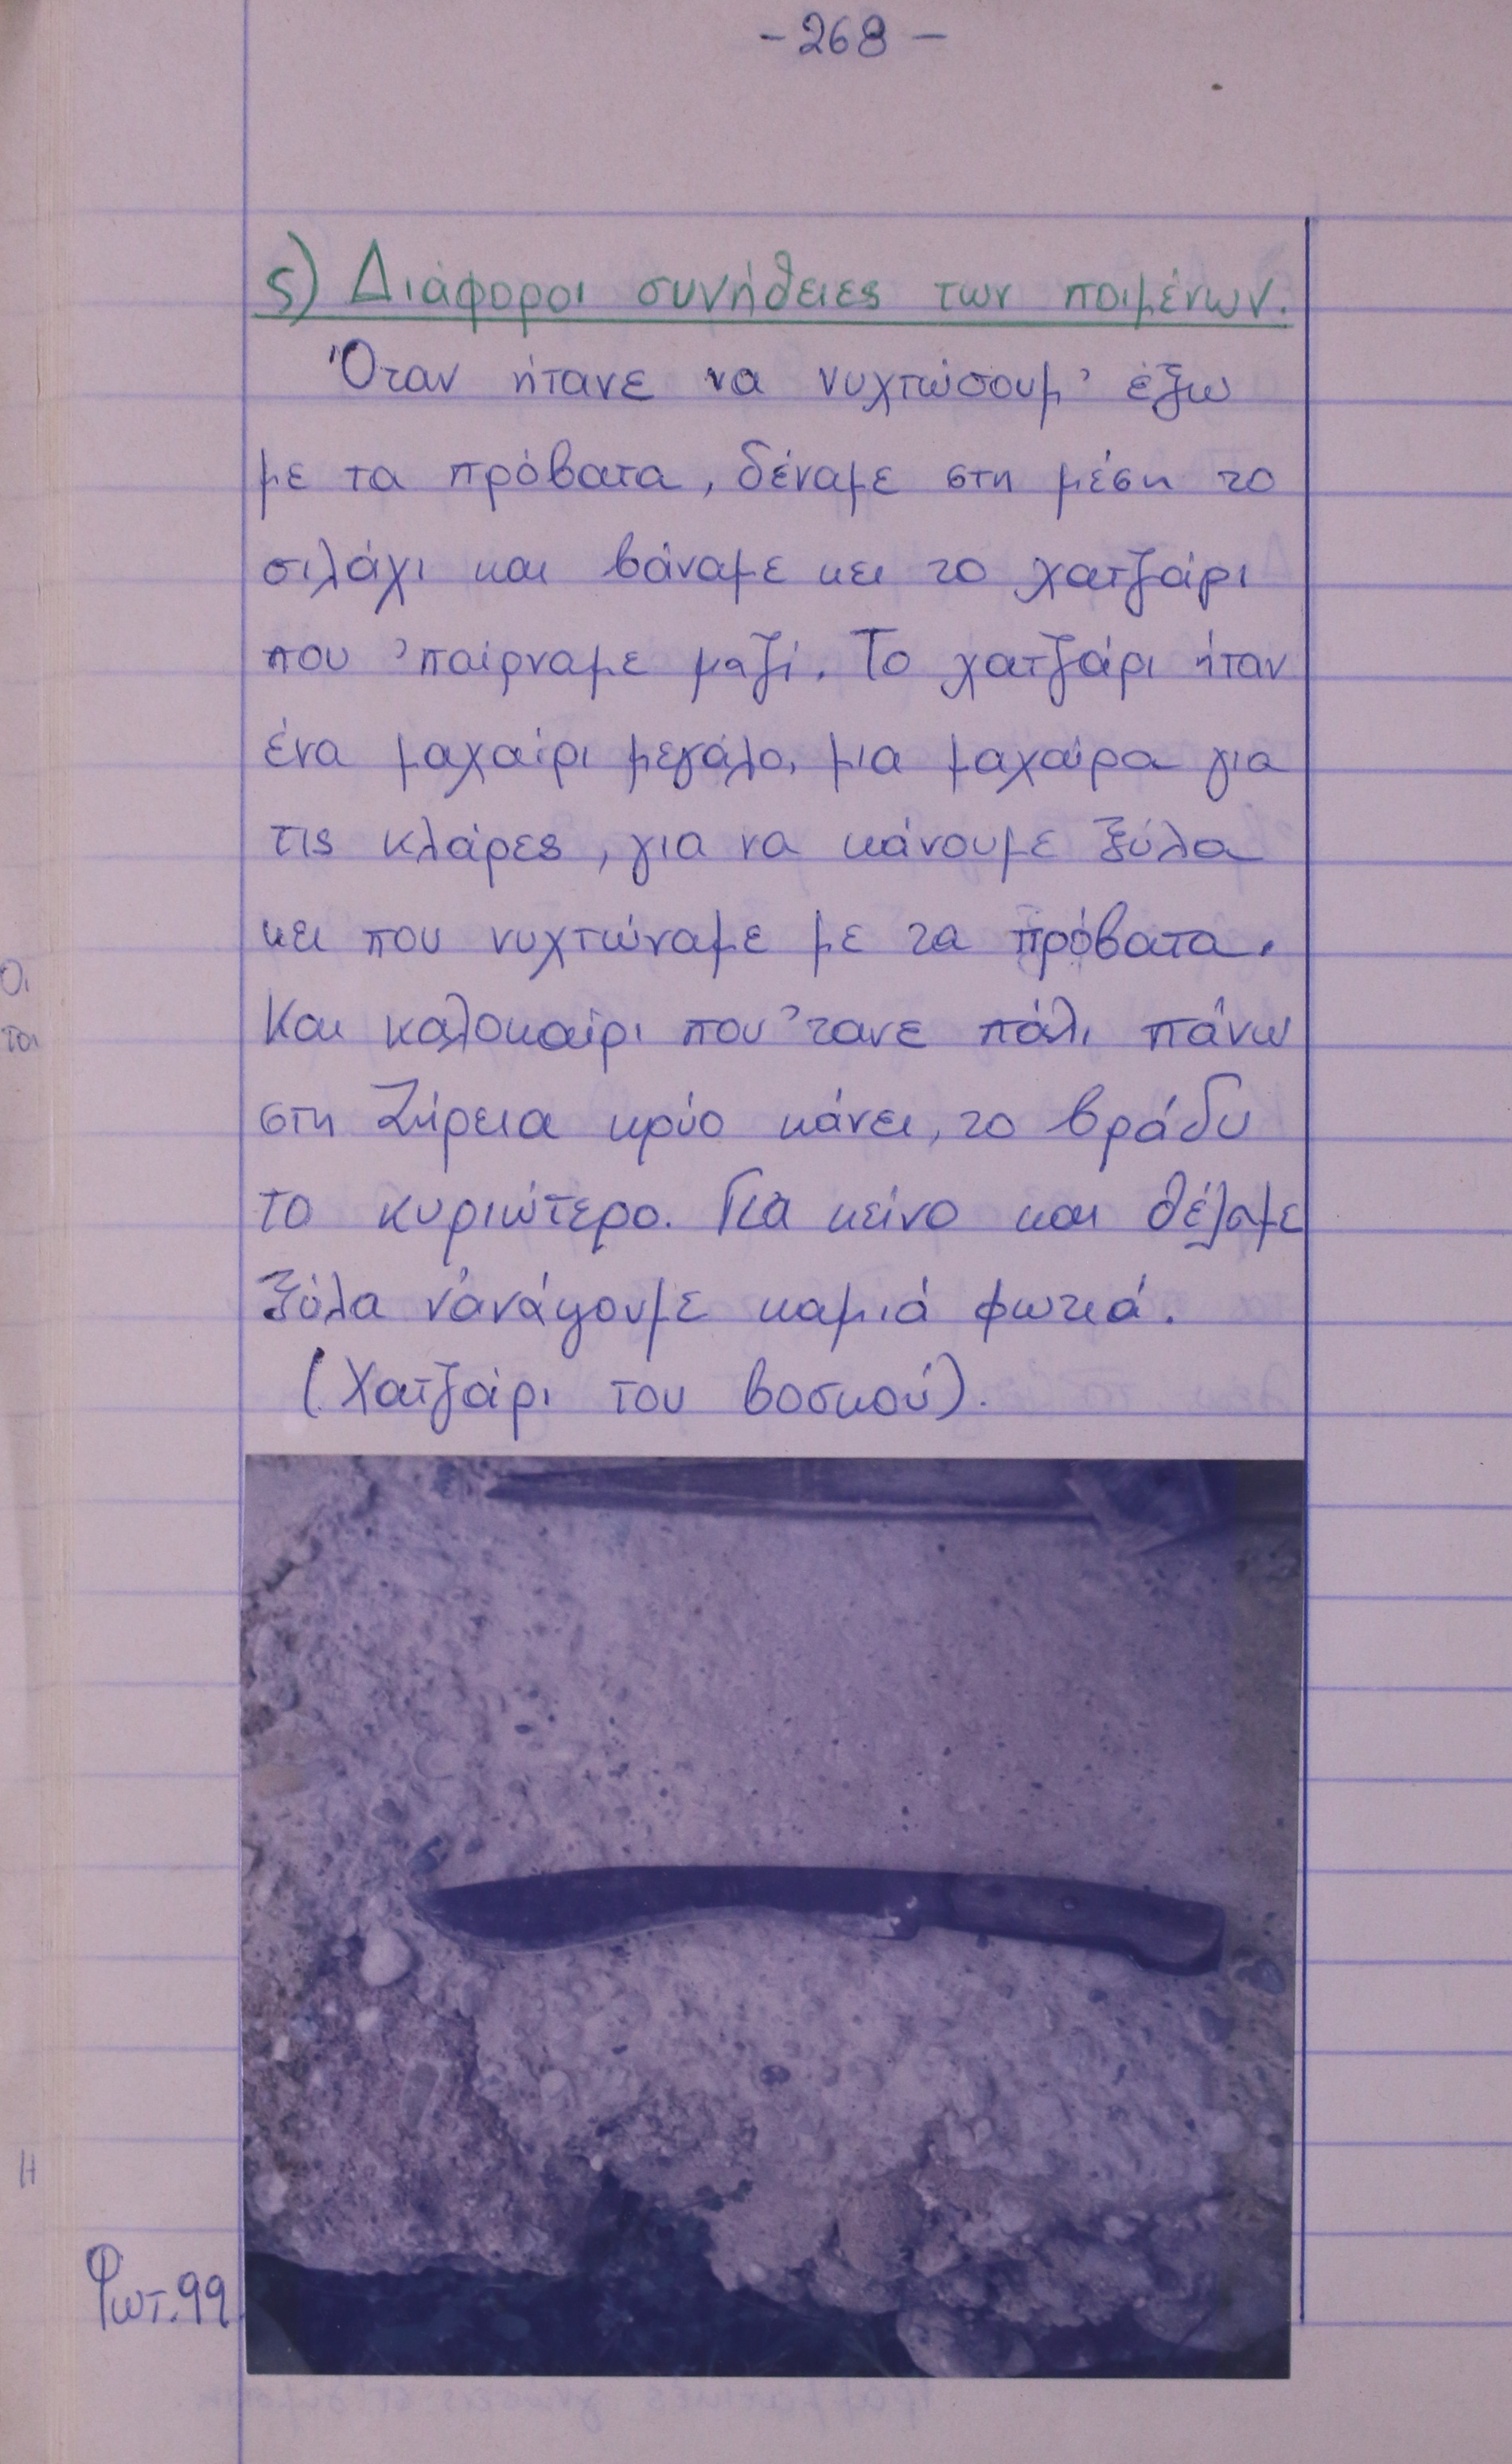 - 268 -
ς) Διάφοροι συνήθειες των ποιμένων.
Όταν ήτανε να νυχτώσουμ' έξω
με τα πρόβατα, δέναμε στη μέση το
σιλάχι και βάναμε κει το χατζάρι
που 'παίρναμε μαζί. Το χατζάρι ήταν
ένα μαχαίρι μεγάλο, μια μαχαίρα για
τις κλάρες, για να κάνουμε ξύλα
κει που νυχτώναμε με τα πρόβατα.
Και καλοκαίρι που 'τανε πάλι πάνω
στη Ζήρεια κρύο κάνει, το βράδυ
το κυριώτερο. Για κείνο και θέλαμε
ξύλα ν' ανάψουμε καμιά φωτιά.
(Χατζάρι του βοσκού).
Φωτ. 99
Οι
το
Η